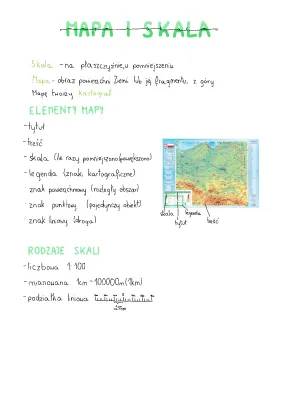 MAPA I SKALA
Skala - na płaszczyźnie, w pomniejszeniu
Mapa - obraz powierzchni Ziemi lub jej fragmentu, z góry
Mapę tworzy kartograf
ELEMENTY MAPY
-tytuł
-treść
-skala (ile razy pomniejszono/powiększono)
-legenda (znaki kartograficzne)
znak powierzchniowy (rozległy obszar)
znak punktowy (pojedynczy obiekt)
znak liniowy (droga)
skala legenda
tytuł treść
RODZAJE SKALI
-liczbowa 1:100
-mianowana 1cm - 100000m (1km)
-podziałka liniowa